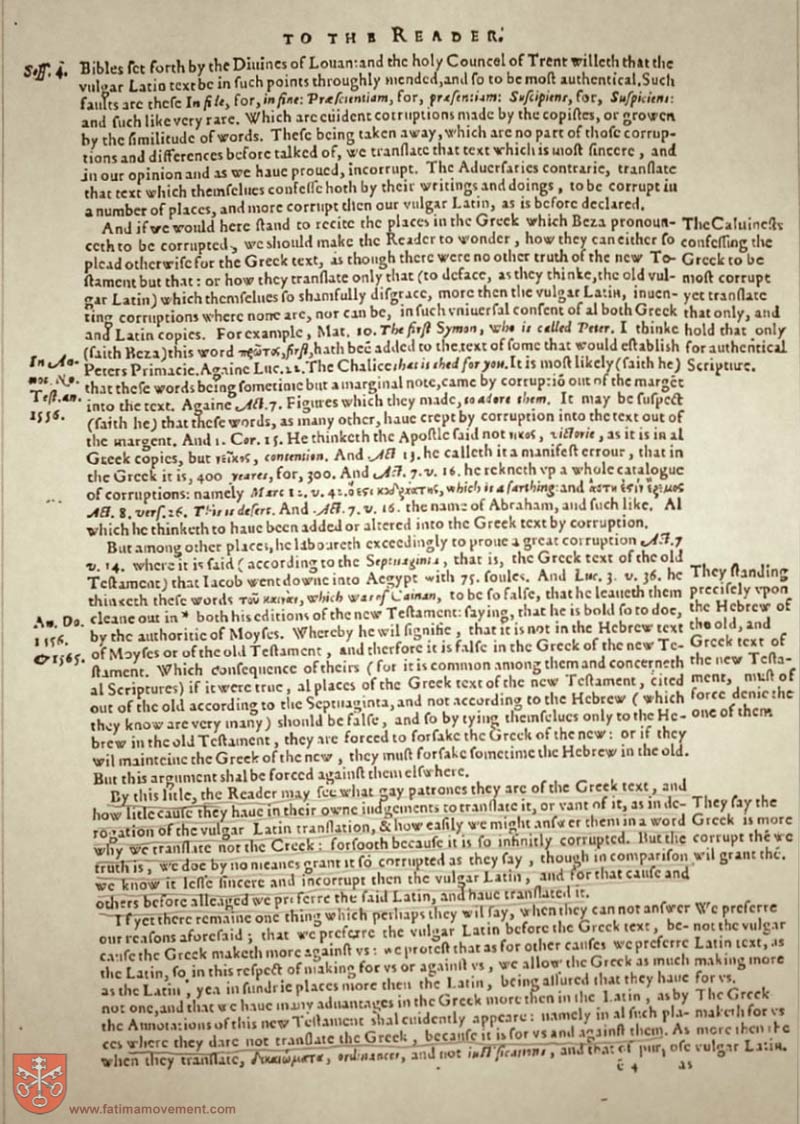 TO THE READER.
Sess. 4.
Bibles set forth by the Diuines of Louan: and the holy Councel of Trent willeth that the
vulgar Latin text be in such points throughly mended, and so to be most authentical. Such
faults are these In fide, for, in fine: Præscientiam, for, præsentiam: Suscipiens, for, Suspiciens:
and such like very rare. Which are euident corruptions made by the copistes, or growen
by the similitude of words. These being taken away, which are no part of those corrup-
tions and differences before talked of, we translate that text which is most sincere, and
in our opinion and as we haue proued, incorrupt. The Aduersaries contrarie, translate
that text which themselues confesse both by their writings and doings, to be corrupt in
a number of places, and more corrupt then our vulgar Latin, as is before declared.
And if we would here stand to recite the places in the Greek which Beza pronoun-
ceth to be corrupted, we should make the Reader to wonder, how they can either so
plead otherwise for the Greek text, as though there were no other truth of the new Te-
stament but that: or how they translate only that (to deface, as they thinke, the old vul-
gar Latin) which themselues so shamfully disgrace, more then the vulgar Latin, inuen-
ting corruptions where none are, nor can be, in such vniuersal consent of al both Greek
and Latin copies. For example, Mat. 10. The first Symon, who is called Peter. I thinke
(saith Beza) this word πρῶτος, first, hath beē added to the text of some that would establish
Peters Primacie. Againe Luc. 22. The Chalice that is shed for you. It is most likely (saith he)
that these words being sometime but a marginal note, came by corruptiō out of the margēt
into the text. Againe Act. 7. Figures which they made, to adore them. It may be suspect
(saith he) that these words, as many other, haue crept by corruption into the text out of
the margent. And 1. Cor. 15. He thinketh the Apostle said not νῖκος, victorie, as it is in al
Greek copies, but νεῖκος, contention. And Act 13. he calleth it a manifest errour, that in
the Greek it is, 400 yeares, for, 300. And Act. 7. v. 16. he rekneth vp a whole catalogue
of corruptions: namely Marc 12. v. 42. ὅ ἐστι κοδράντης, which is a farthing: and αὕτη ἐστὶν ἔρημος
Act. 8. vers. 26. This is desert. And Act. 7. v. 16. the name of Abraham, and such like. Al
which he thinketh to haue been added or altered into the Greek text by corruption.
The Caluinests
confessing the
Greek to be
most corrupt
yet translate
that only, and
hold that only
for authentical
Scripture.
In An-
not. No.
Test. an.
1556.
But among other places, he laboureth exceedingly to proue a great corruption Act. 7
v. 14. where it is said (according to the Septuaginta, that is, the Greek text of the old
Testament) that Iacob went downe into Aegypt with 75. soules. And Luc. 3. v. 36. he
thinketh these words τοῦ καϊνὰν, which was of Cainan, to be so false, that he leaueth them
cleane out in * both his editions of the new Testament: saying, that he is bold so to doe,
by the authoritie of Moyses. Whereby he wil signifie, that it is not in the Hebrew text
of Moyses or of the old Testament, and therfore it is false in the Greek of the new Te-
stament. Which consequence of theirs (for it is common among them and concerneth
al Scriptures) if it were true, al places of the Greek text of the new Testament, cited
out of the old according to the Septuaginta, and not according to the Hebrew (which
they know are very many) should be false, and so by tying themselues only to the He-
brew in the old Testament, they are forced to forsake the Greek of the new: or if they
wil mainteine the Greek of the new, they must forsake sometime the Hebrew in the old.
But this argument shal be forced against them elswhere.
An. Do.
1556.
& 1565.
They standing
precisely vpon
the Hebrew of
the old, and
Greek text of
the new Testa-
ment, must of
force denie the
one of them
By this litle, the Reader may see what gay patrones they are of the Greek text, and
how litle cause they haue in their owne iudgements to translate it, or vant of it, as in de-
rogation of the vulgar Latin translation, & how easily we might answer them in a word
why we translate not the Greek: forsooth because it is so infinitly corrupted. But the
truth is, we doe by no meanes grant it so corrupted as they say, though in comparison
we know it lesse sincere and incorrupt then the vulgar Latin, and for that cause and
others before alleaged we preferre the said Latin, and haue translated it.
They say the
Greek is more
corrupt thē we
wil grant thē.
If yet there remaine one thing which perhaps they wil say, when they can not answer
our reasons aforesaid; that we preferre the vulgar Latin before the Greek text, be-
cause the Greek maketh more against vs: we protest that as for other causes we preferre
the Latin, so in this respect of making for vs or against vs, we allow the Greek as much
as the Latin, yea in sundrie places more then the Latin, being assured that they haue
not one, and that we haue many aduantages in the Greek more then in the Latin, as by
the Annotations of this new Testament shal euidently appeare: namely in al such pla-
ces where they dare not translate the Greek, because it is for vs and against them. As
when they translate, δικαιώματα, ordinances, and not iustifications, and that of purpose
We preferre
not the vulgar
Latin text, as
making more
for vs.
The Greek
maketh for vs
more then the
vulgar Latin.
c 4
as
www.fatimamovement.com